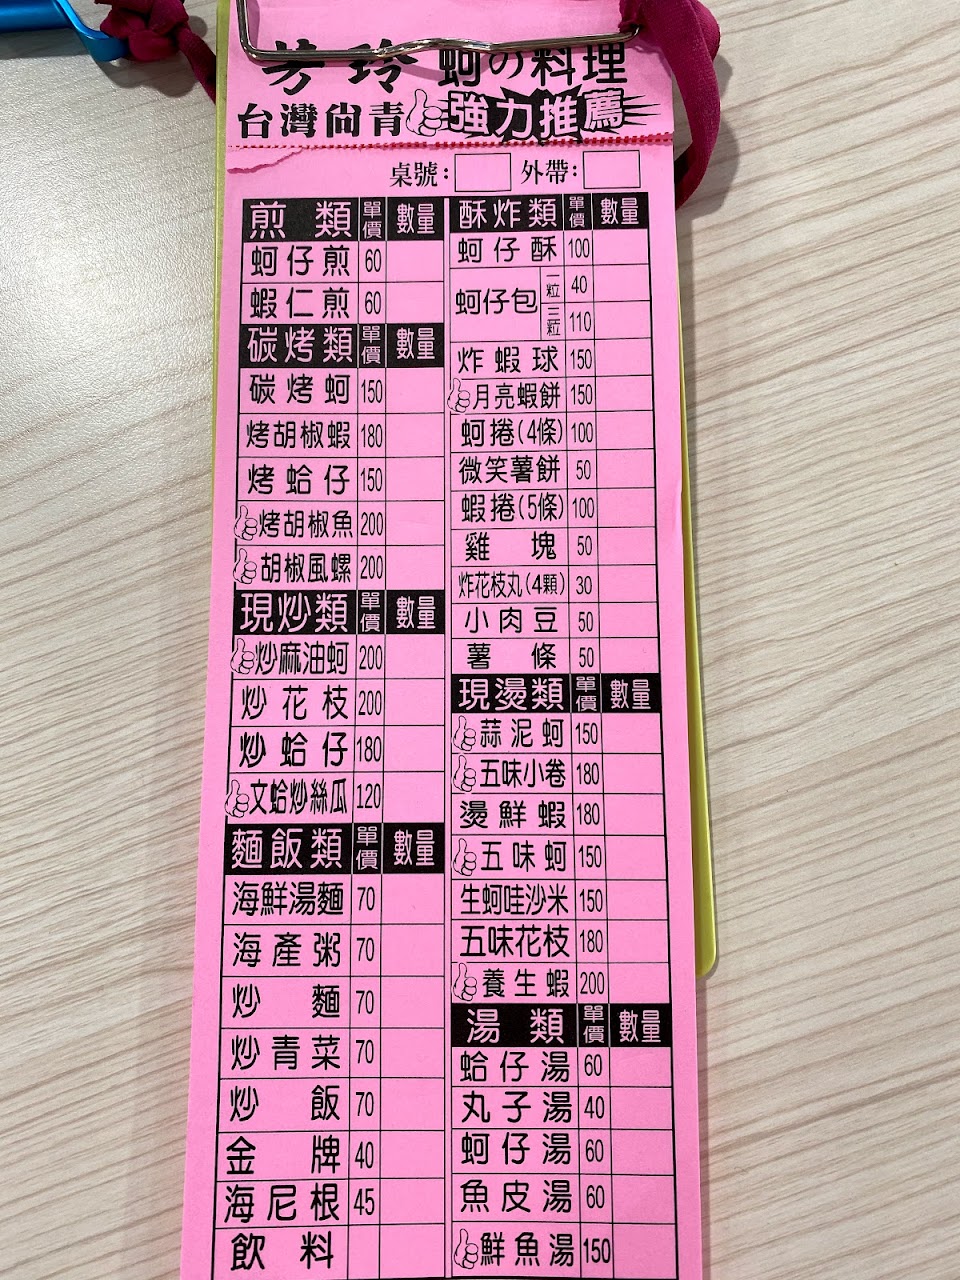 芳玲 蚵の料理
台灣尚青 強力推薦
桌號： 外帶：
煎類 單價 數量
蚵仔煎 60
蝦仁煎 60
碳烤類 單價 數量
碳烤蚵 150
烤胡椒蝦 180
烤蛤仔 150
烤胡椒魚 200
胡椒風螺 200
現炒類 單價 數量
炒麻油蚵 200
炒花枝 200
炒蛤仔 180
文蛤炒絲瓜 120
麵飯類 單價 數量
海鮮湯麵 70
海產粥 70
炒麵 70
炒青菜 70
炒飯 70
金牌 40
海尼根 45
飲料
酥炸類 單價 數量
蚵仔酥 100
蚵仔包 一粒 40
三粒 110
炸蝦球 150
月亮蝦餅 150
蚵捲(4條) 100
微笑薯餅 50
蝦捲(5條) 100
雞塊 50
炸花枝丸(4顆) 30
小肉豆 50
薯條 50
現燙類 單價 數量
蒜泥蚵 150
五味小卷 180
燙鮮蝦 180
五味蚵 150
生蚵哇沙米 150
五味花枝 180
養生蝦 200
湯類 單價 數量
蛤仔湯 60
丸子湯 40
蚵仔湯 60
魚皮湯 60
鮮魚湯 150